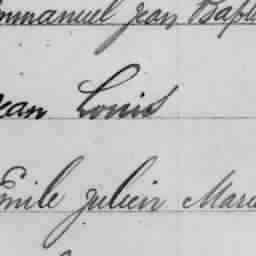 Emmanuel Jean Bapt
Jean Louis
Emile Julien Marie